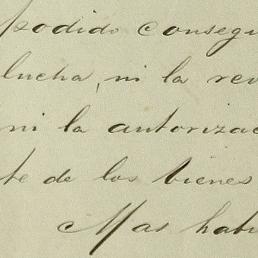 podido consegu
lucha, ni la rev
ni la autorizac
te de los bienes
Mas hab